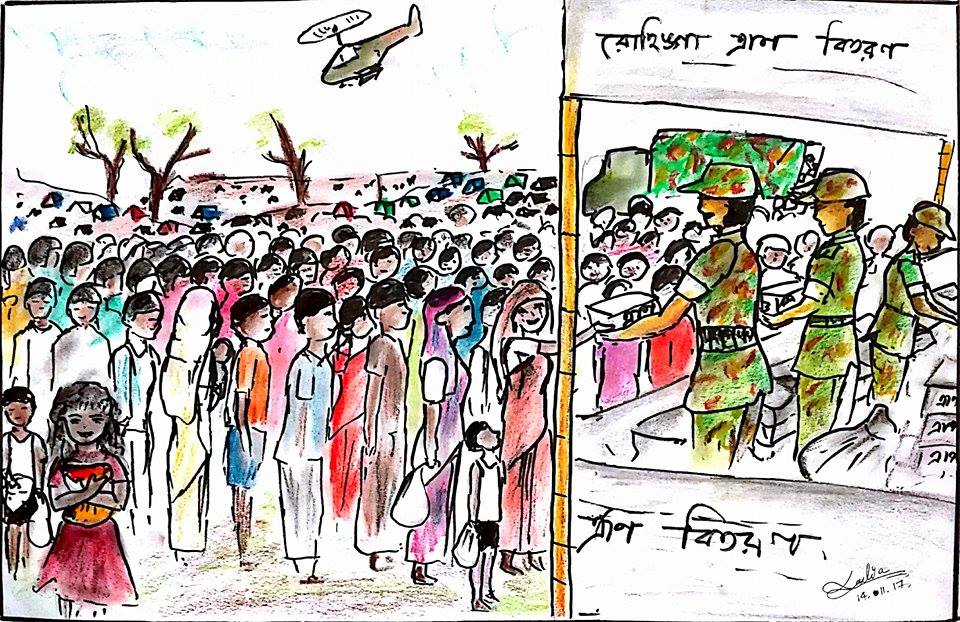 রোহিঙ্গা ত্রাণ বিতরণ
ত্রাণ
ত্রাণ
ত্রাণ
ত্রাণ
ত্রাণ
ত্রাণ বিতরণ
14.011.17.